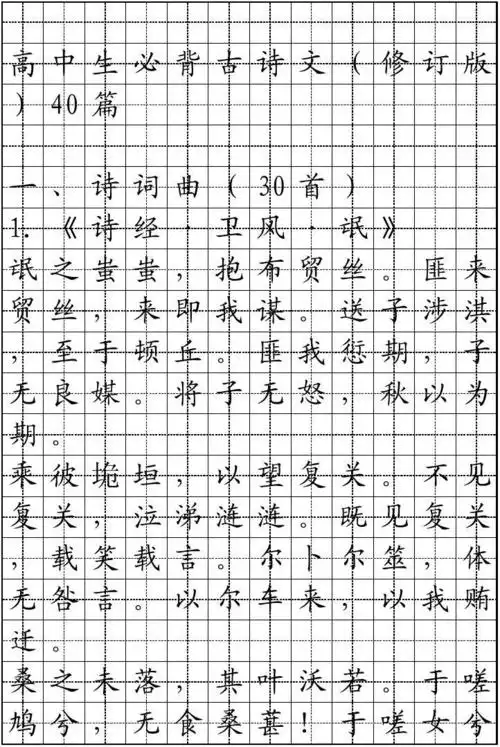 高中生必背古诗文（修订版
）40篇
一、诗词曲（30首）
1.《诗经·卫风·氓》
氓之蚩蚩，抱布贸丝。匪来
贸丝，来即我谋。送子涉淇
，至于顿丘。匪我愆期，子
无良媒。将子无怒，秋以为
期。
乘彼垝垣，以望复关。不见
复关，泣涕涟涟。既见复关
，载笑载言。尔卜尔筮，体
无咎言。以尔车来，以我贿
迁。
桑之未落，其叶沃若。于嗟
鸠兮，无食桑葚！于嗟女兮